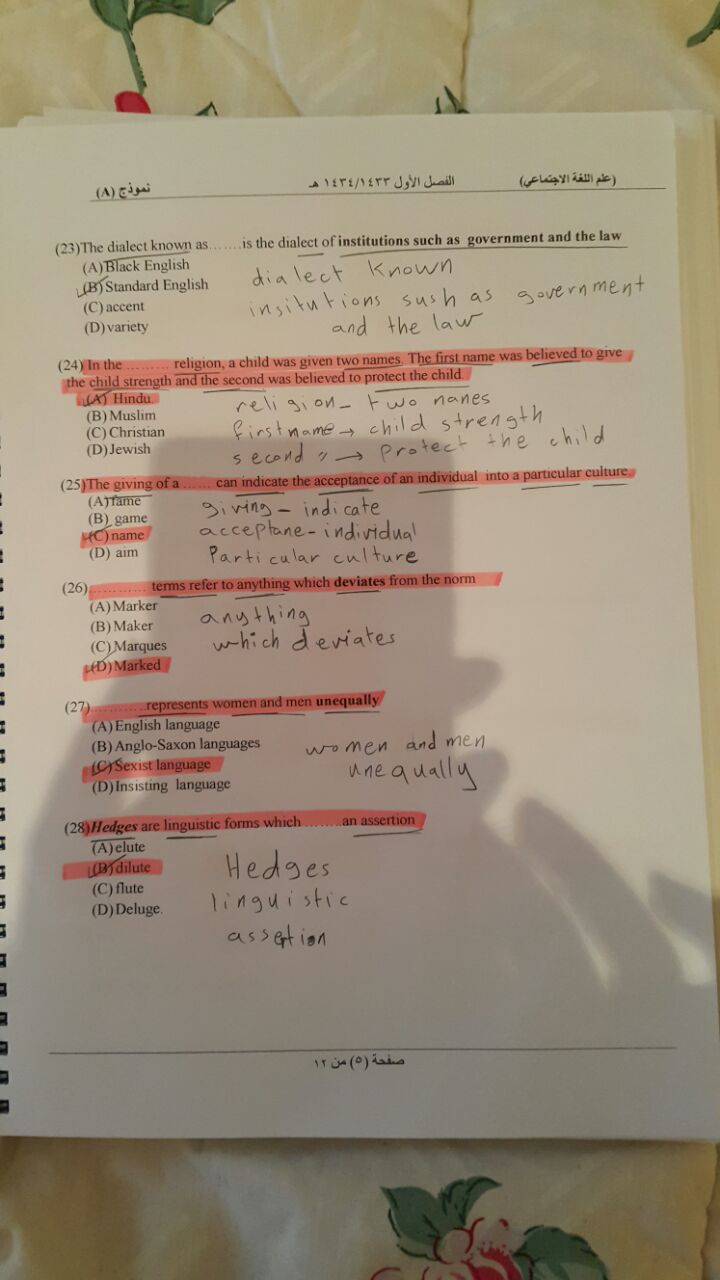 (علم اللغة الاجتماعي) الفصل الأول ١٤٣٤/١٤٣٣ هـ نموذج (A)
(23)The dialect known as.......is the dialect of institutions such as government and the law
(A)Black English
(B)Standard English
(C)accent
(D)variety
dialect known
insitutions sush as government
and the law
(24) In the ......... religion, a child was given two names. The first name was believed to give
the child strength and the second was believed to protect the child.
(A) Hindu
(B)Muslim
(C)Christian
(D)Jewish
religion_ two nanes
firstname → child strength
second 〃 → protect the child
(25)The giving of a ...... can indicate the acceptance of an individual into a particular culture.
(A)fame
(B) game
(C)name
(D) aim
giving - indicate
acceptane - individual
Particular culture
(26)............ terms refer to anything which deviates from the norm
(A)Marker
(B)Maker
(C)Marques
(D)Marked
anything
which deviates
(27)............represents women and men unequally
(A)English language
(B)Anglo-Saxon languages
(C)Sexist language
(D)Insisting language
women and men
unequally
(28)Hedges are linguistic forms which ........an assertion
(A)elute
(B)dilute
(C)flute
(D)Deluge.
Hedges
linguistic
assertion
صفحة (٥) من ١٢